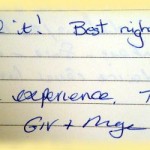 it! Best nigh
experience. T
Giv + Mge